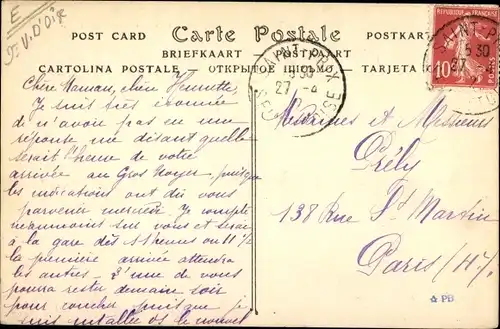 E
St V. D'Oise
POST CARD Carte Postale POSTKARTE
BRIEFKAART — POSTKART
CARTOLINA POSTALE — ОТКРЫТОЕ ПИСЬМО — TARJETA
REPUBLIQUE FRANÇAISE
10
SAINT-PRIX
27 -
SEINE-ET-OISE
Chère Maman, chère Henriette,
Je suis très étonnée
de n'avoir pas eu une
réponse me disant quelle
serait l'heure de votre
arrivée au Gros Noyer, puisque
les indications ont dû vous
parvenir mercredi. Je compte
néanmoins sur vous et serai
à la gare dès 11 heures ou 11 h ½
la première arrivée attendra
les autres. L'une de vous
pourra rester demain soir
pour coucher puisque je
suis installée dès le nouvel
Mesdames et Messieurs
Prély
138 Rue St Martin
Paris
PB